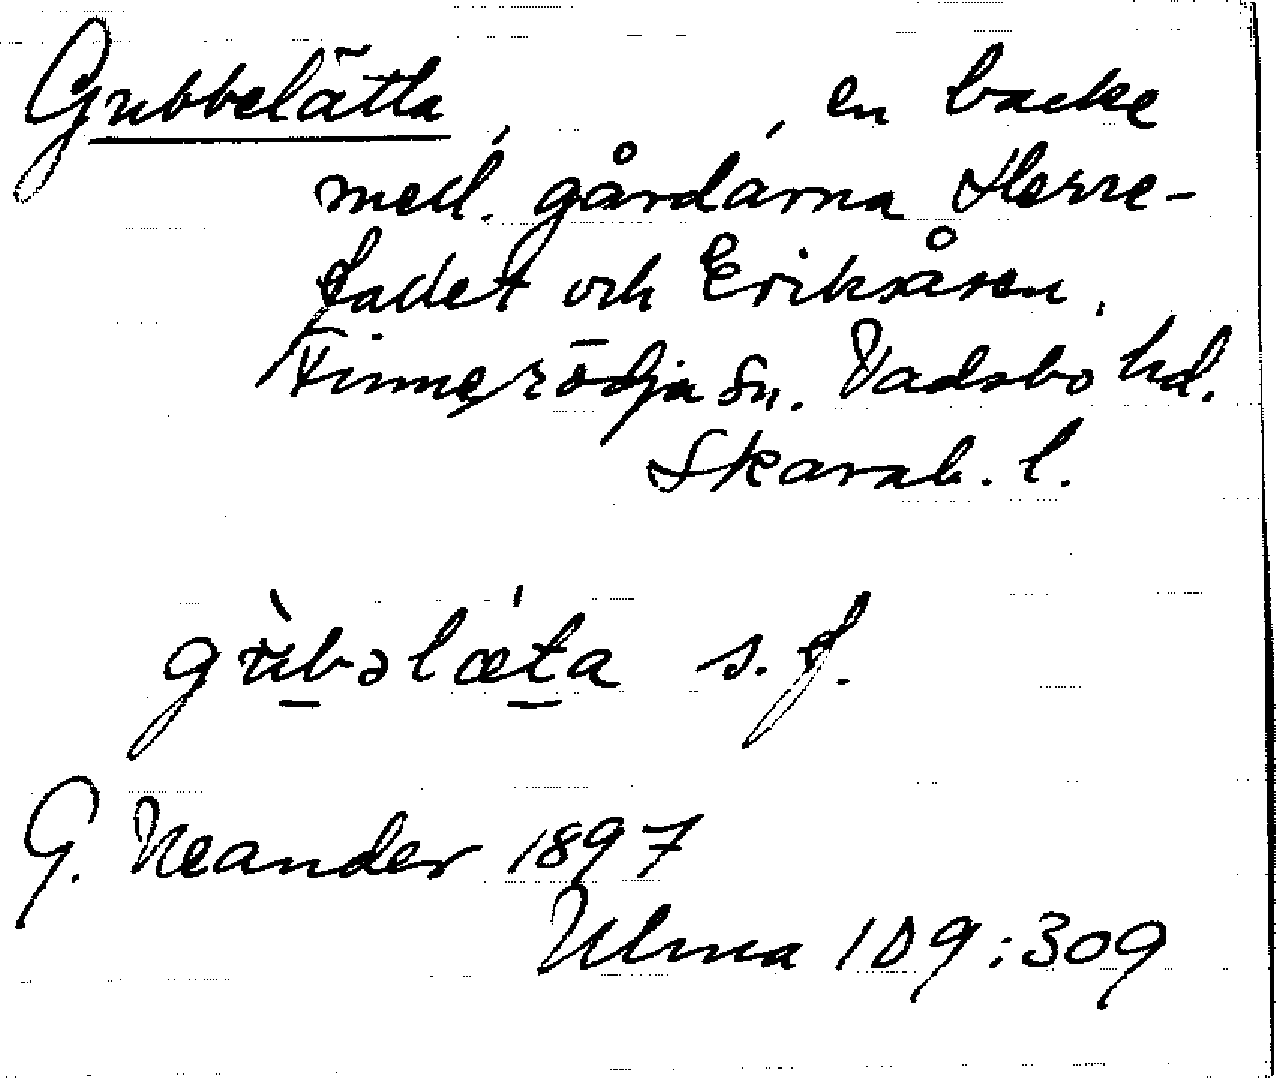 Grubbelätta, , en backe
mell. gårdarna Herre-
fadet och Eriksåsen,
Finnerödja sn. Vadsbo hd.
Skarab. l.
grùbəlæ̍ta s. f.
G. Neander 1897
Ulma 109:309